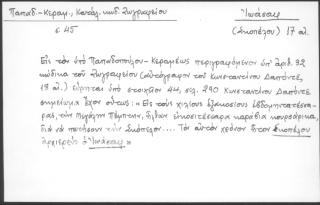 Παπαδ.-Κεραμ., Κατάλ. κωδ. Ζωγραφείου
Ἰωάσαφ
σ. 45
(Σκοπέλου) 17 αἰ.
Εἰς τὸν ὑπὸ Παπαδοπούλου-Κεραμέως περιγραφόμενον ὑπ' ἀριθ. 32
κώδικα τοῦ Ζωγραφείου (αὐτόγραφον τοῦ Κωνσταντίνου Δαπόντε,
18 αἰ.) εὕρηται ὑπὸ στοιχεῖον 44, σελ. 290 Κωνσταντίνου Δαπόντε
σημείωμα ἔχον οὕτως: «Εἰς τοὺς χιλίους ἑξακοσίους ἑβδομηντατέσσα-
ρας, τὴν Μεγάλην Πέμπτην, ἦλθαν εἰκοσιτέσσαρα καράβια κουρσάρικα,
διὰ νὰ πατήσουν τὴν Σκόπελον.... Τὸν αὐτὸν χρόνον ἦτον Σκοπέλου
ἀρχιερεὺς ὁ Ἰωάσαφ»